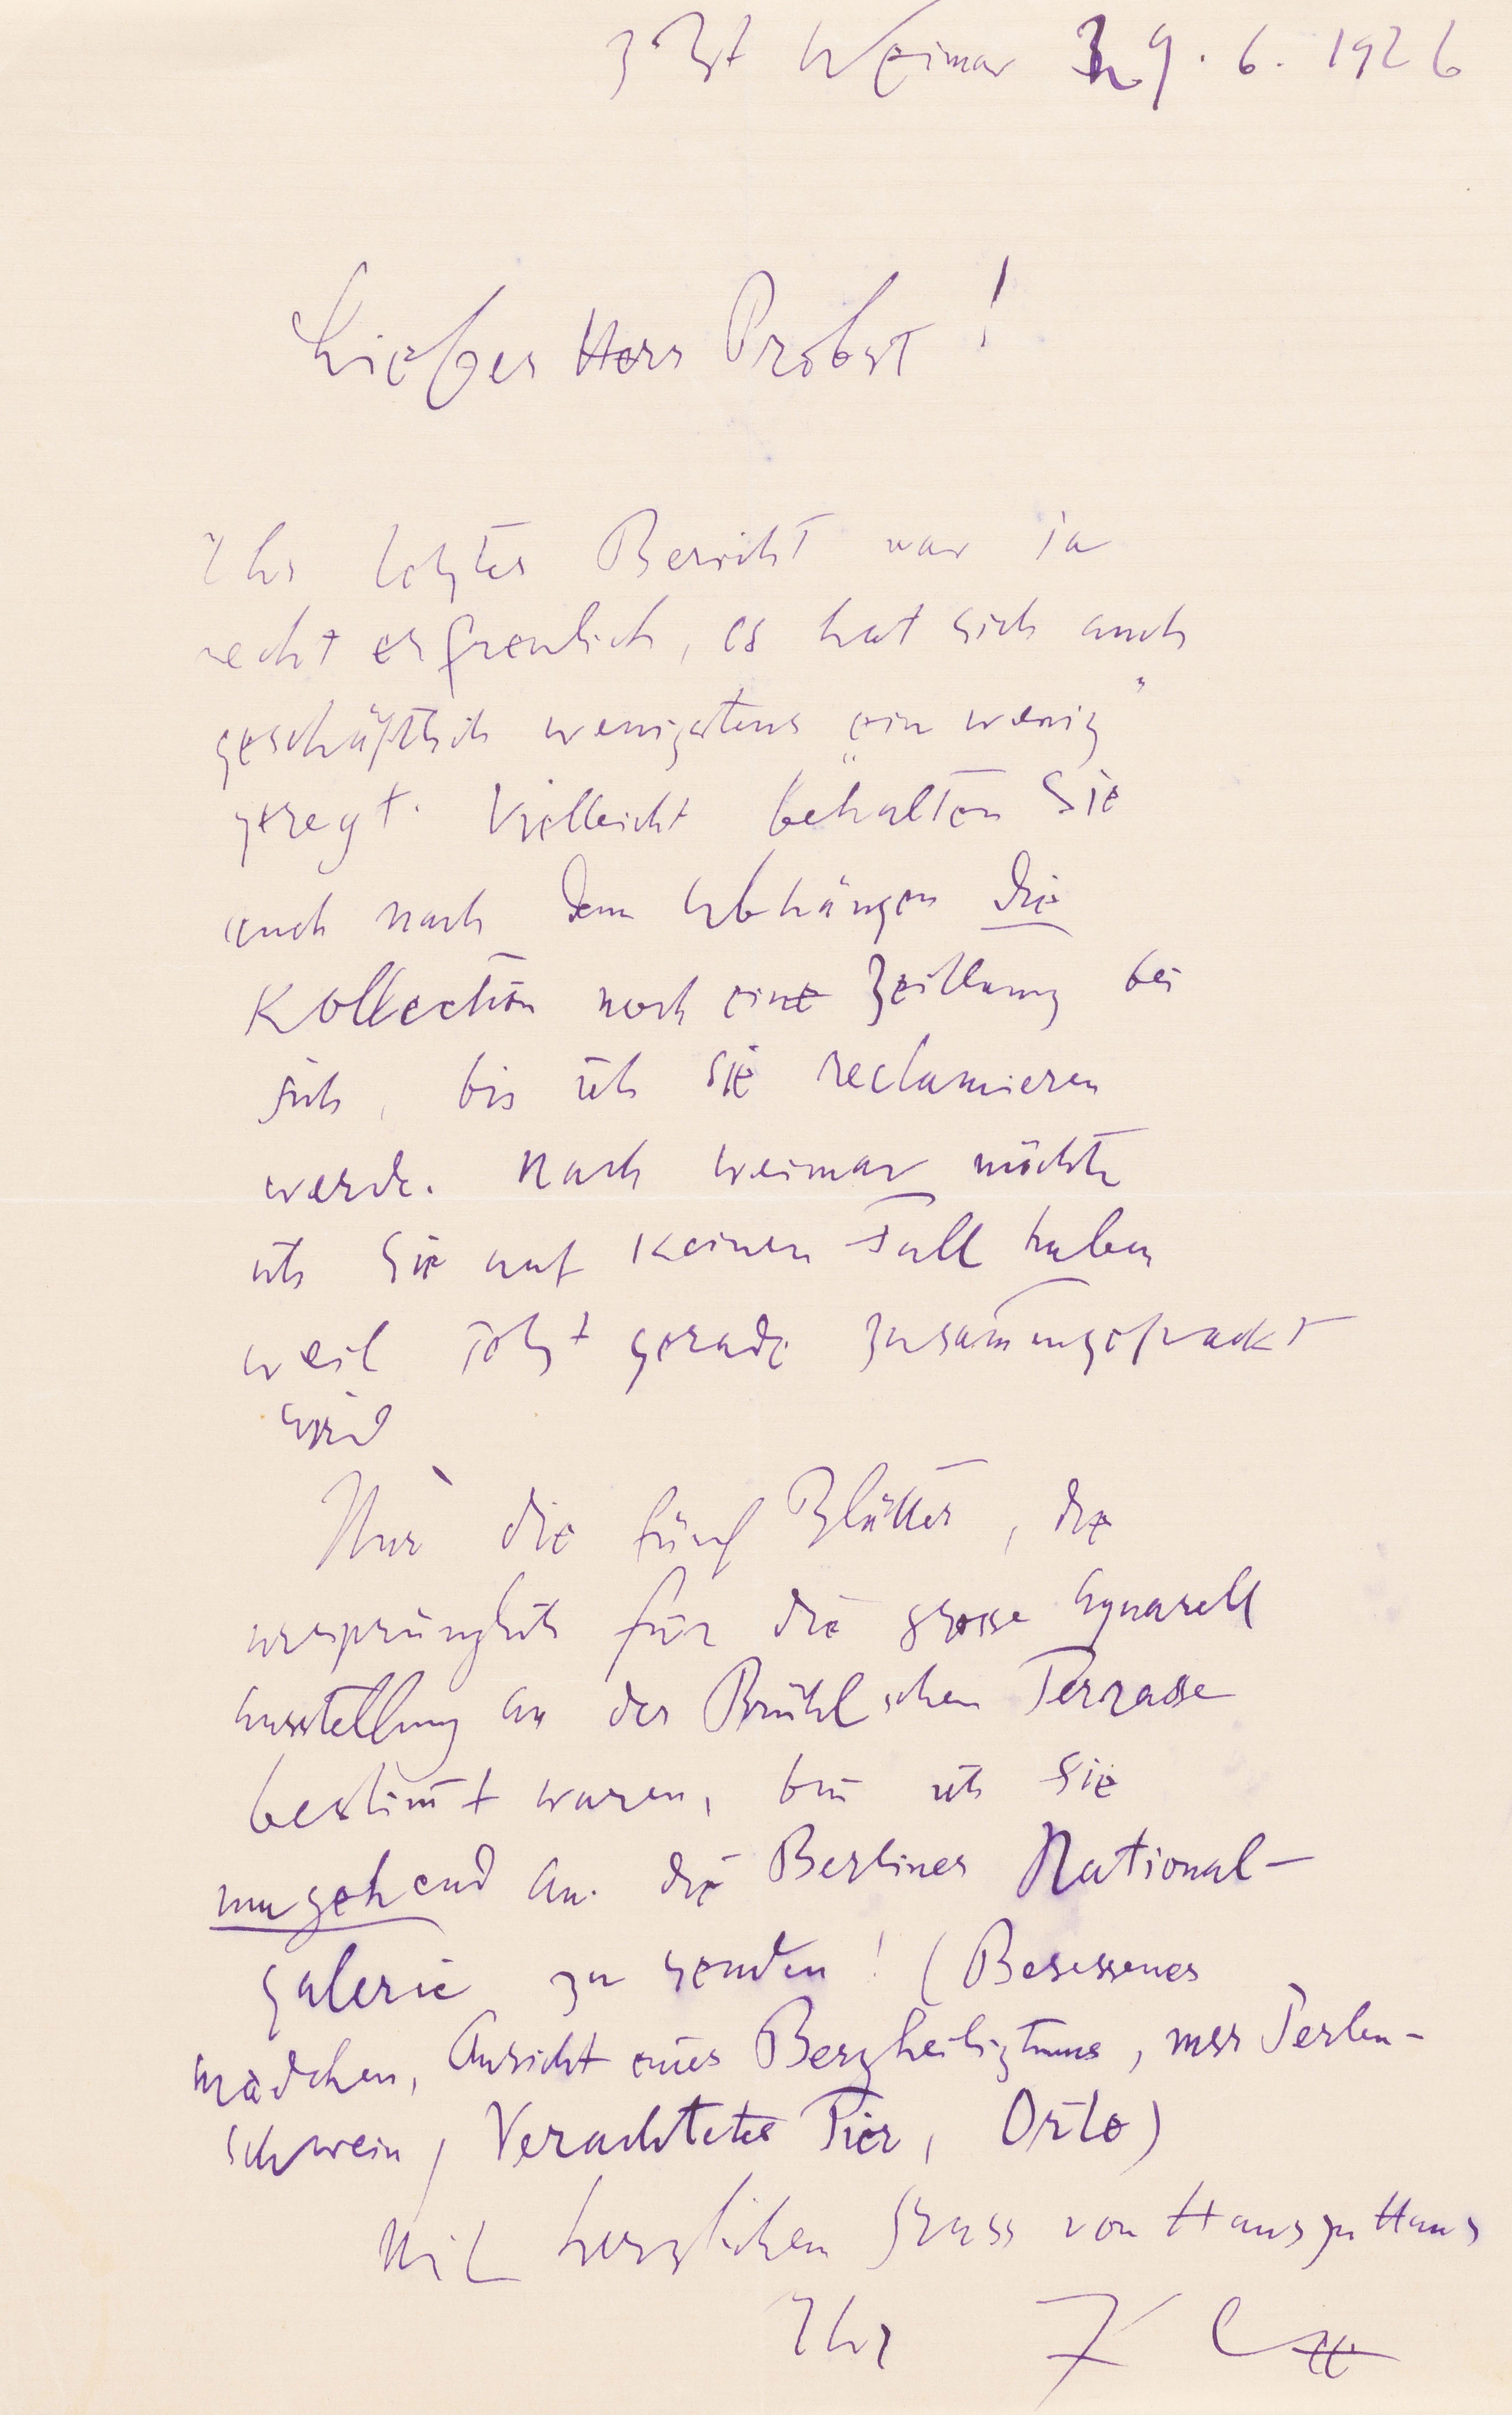 z Zt Weimar 29.6.1926
Lieber Herr Probst!
Ihr letzter Bericht war ja
recht erfreulich, es hat sich auch
geschäftlich wenigstens „ein wenig"
geregt. Vielleicht behalten Sie
auch nach dem Abhängen die
Kollection noch eine Zeitlang bei
sich, bis ich sie reclamieren
werde. Nach Weimar möchte
ich sie auf keinen Fall haben
weil jetzt gerade zusam̅engepackt
wird
Nur die fünf Blätter, die
ursprünglich für die grosse Aquarell
Ausstellung an der Brühlschen Terrasse
bestim̅t waren, bin ich Sie
umgehend an die Berliner National-
galerie zu senden! (Besessenes
Mädchen, Ansicht eines Bergheiligtums, Perlen-
schwein, Verachtetes Tier, Orte)
Mit herzlichem Gruss von Haus zu Haus
Ihr Klee